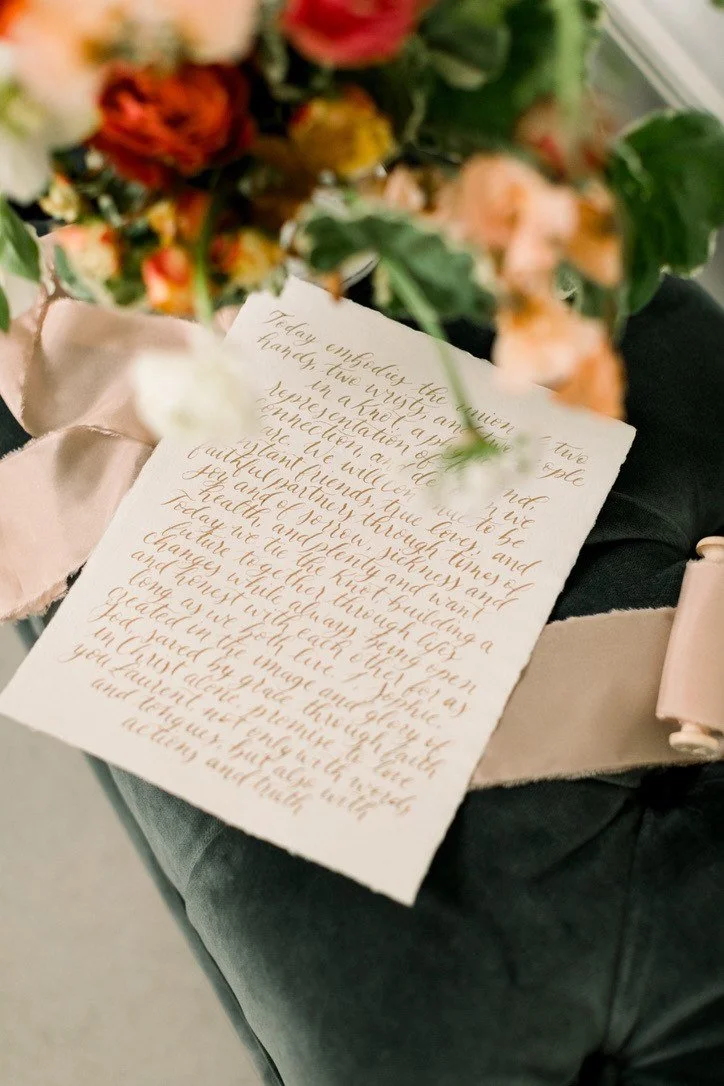 Today embodies the union two
hands, two wrists, and
in a knot a ple
representation of
connection, and
are. We will con to be
constant friends, true lover, and
faithful partners through times of
joy and of sorrow, sickness and
health, and plenty and want
Today we tie the knot building a
future together through life's
changes while always being open
and honest with each other for as
long as we both live. I, Sophie,
created in the image and glory of
God, saved by grace through faith
in Christ alone, promise to love
you Laurent not only with words
and tongues, but also with
actions and truth